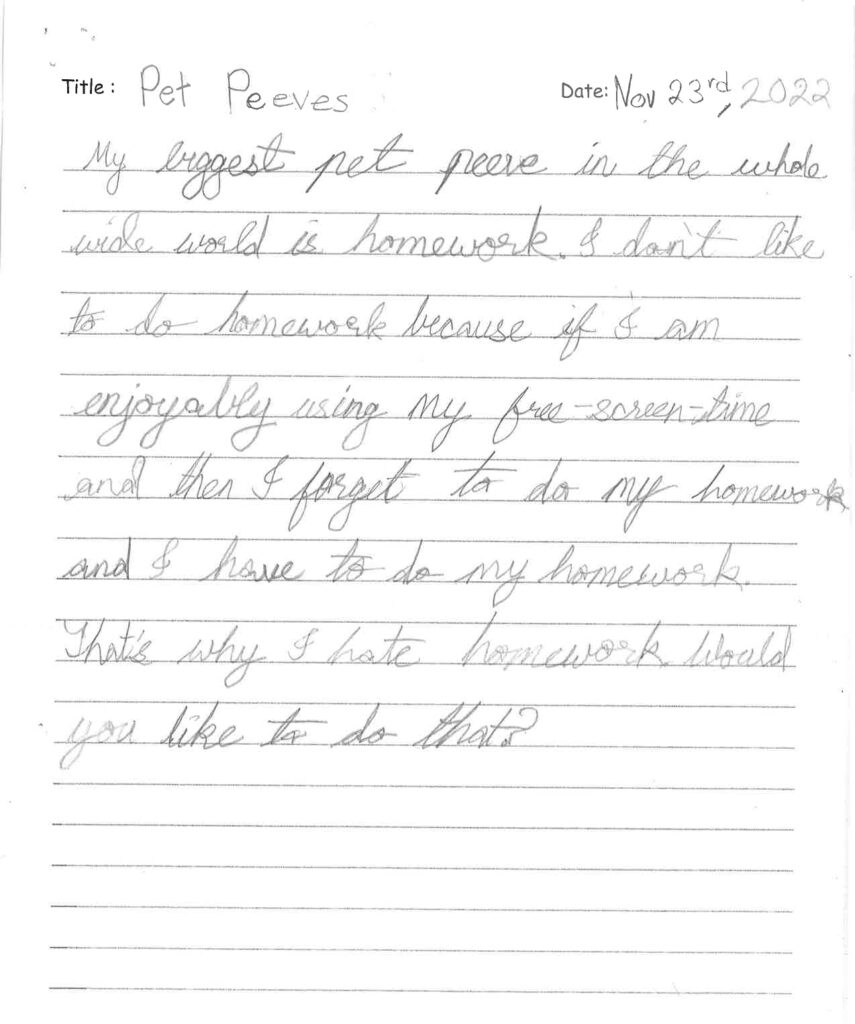 Title: Pet Peeves Date: Nov 23rd, 2022
My biggest pet peeve in the whole
wide world is homework. I don't like
to do homework because if I am
enjoyably using my free-screen-time
and then I forget to do my homework
and I have to do my homework.
That's why I hate homework. Would
you like to do that?